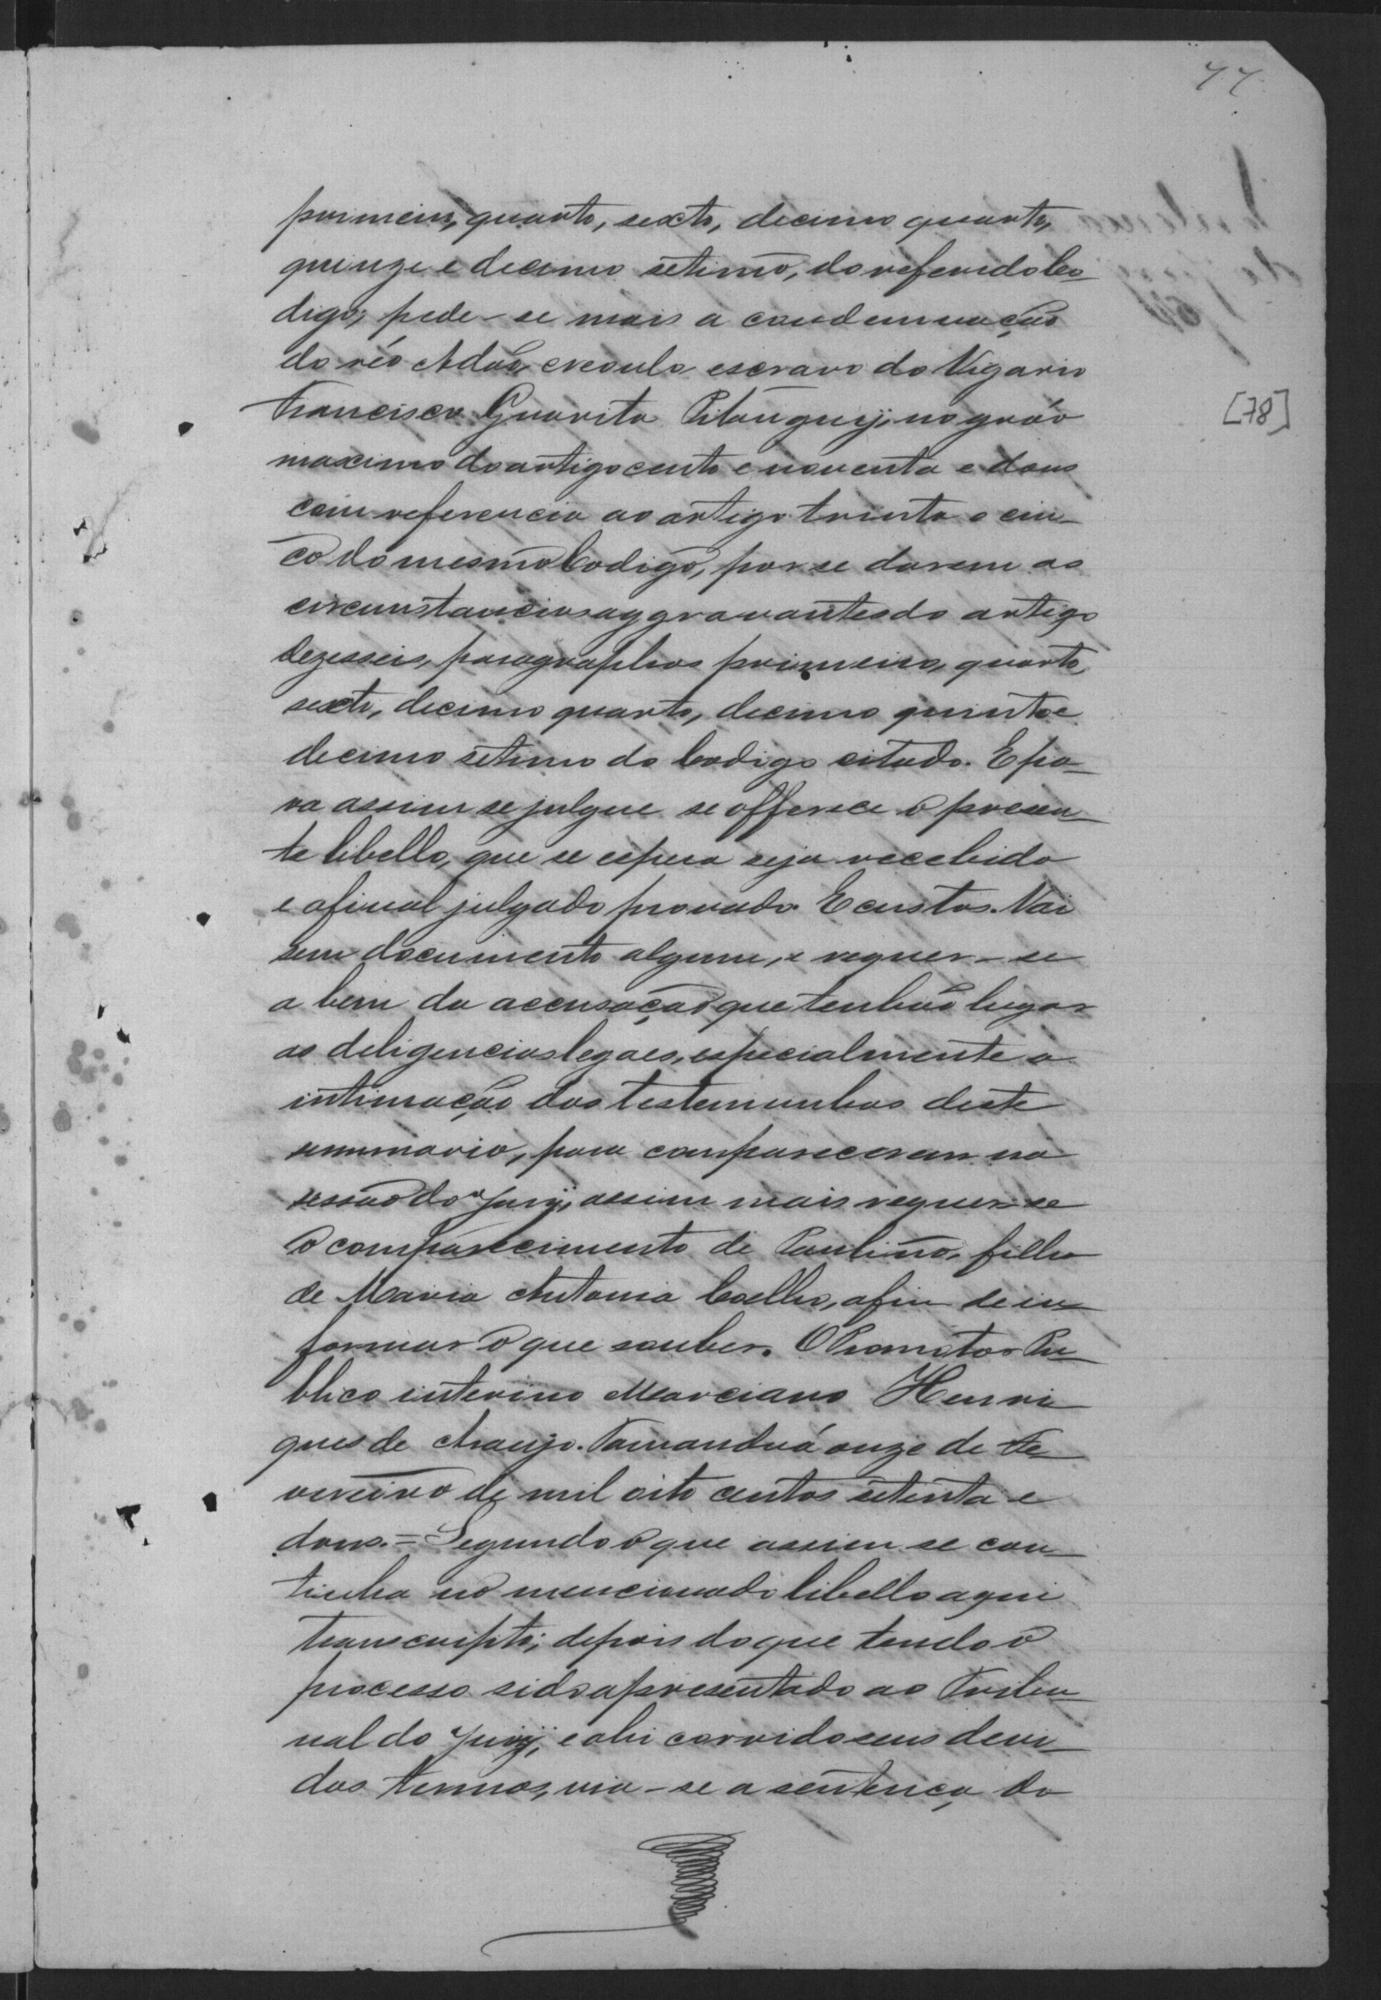 77
primeiro, quarto, sexto, decimo quarto,
quinze e decimo setimo, do referido Co-
digo; pede-se mais a condemnação
do réo Adão, creoulo, escravo do Vigario
Francisco Guarita Pitanguy, no gráo
maximo do artigo cento e noventa e dous
com referencia ao artigo trinta e cin-
co do mesmo Codigo, por se darem as
circunstancias aggravantes do artigo
dezesseis, paragraphos primeiro, quarto,
sexto, decimo quarto, decimo quinto e
decimo setimo do Codigo citado. E pa-
ra assim se julgue se offerece o presen-
te libello, que se espera seja recebido
e afinal julgado provado. E custas. Vai
sem documento algum, e requer-se
a bem da accusação que tenhão lugar
as deligencias legaes, especialmente a
intimação das testemunhas deste
summario, para comparecerem na
sessão do Jury, assim mais requer-se
o comparecimento de Paulino, filho
de Maria Antonia Coelho, afim de in-
formar o que souber. O Promotor Pu-
blico interino Marciano Henri-
ques de Araujo. Tamanduá onze de Fe-
vereiro de mil oito centos setenta e
dous. = Segundo o que assim se con-
tinha no mencionado libello aqui
transcripto; depois do que tendo o
processo sido apresentado ao Tribu-
nal do Jury, e ahi corrido seus devi-
dos termos, via-se a sentença do
[78]